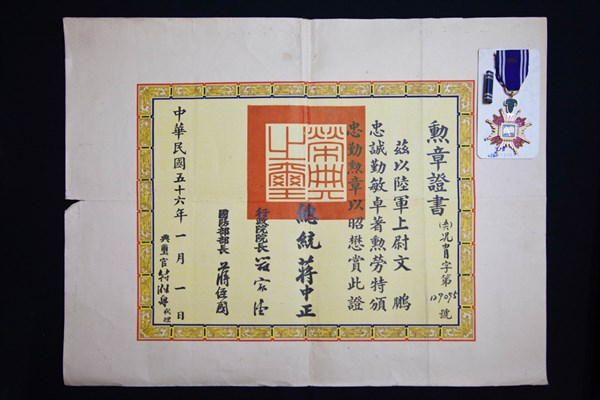 勲章證書
(共)況青字第12705號
茲以陸軍上尉文鵬
忠誠勤敏卓著勲勞特頒
忠勤勲章以昭懋賞此證
總統蔣中正
行政院院長嚴家淦
國防部部長蔣經國
典璽官
中華民國五十六年一月一日
榮典之璽